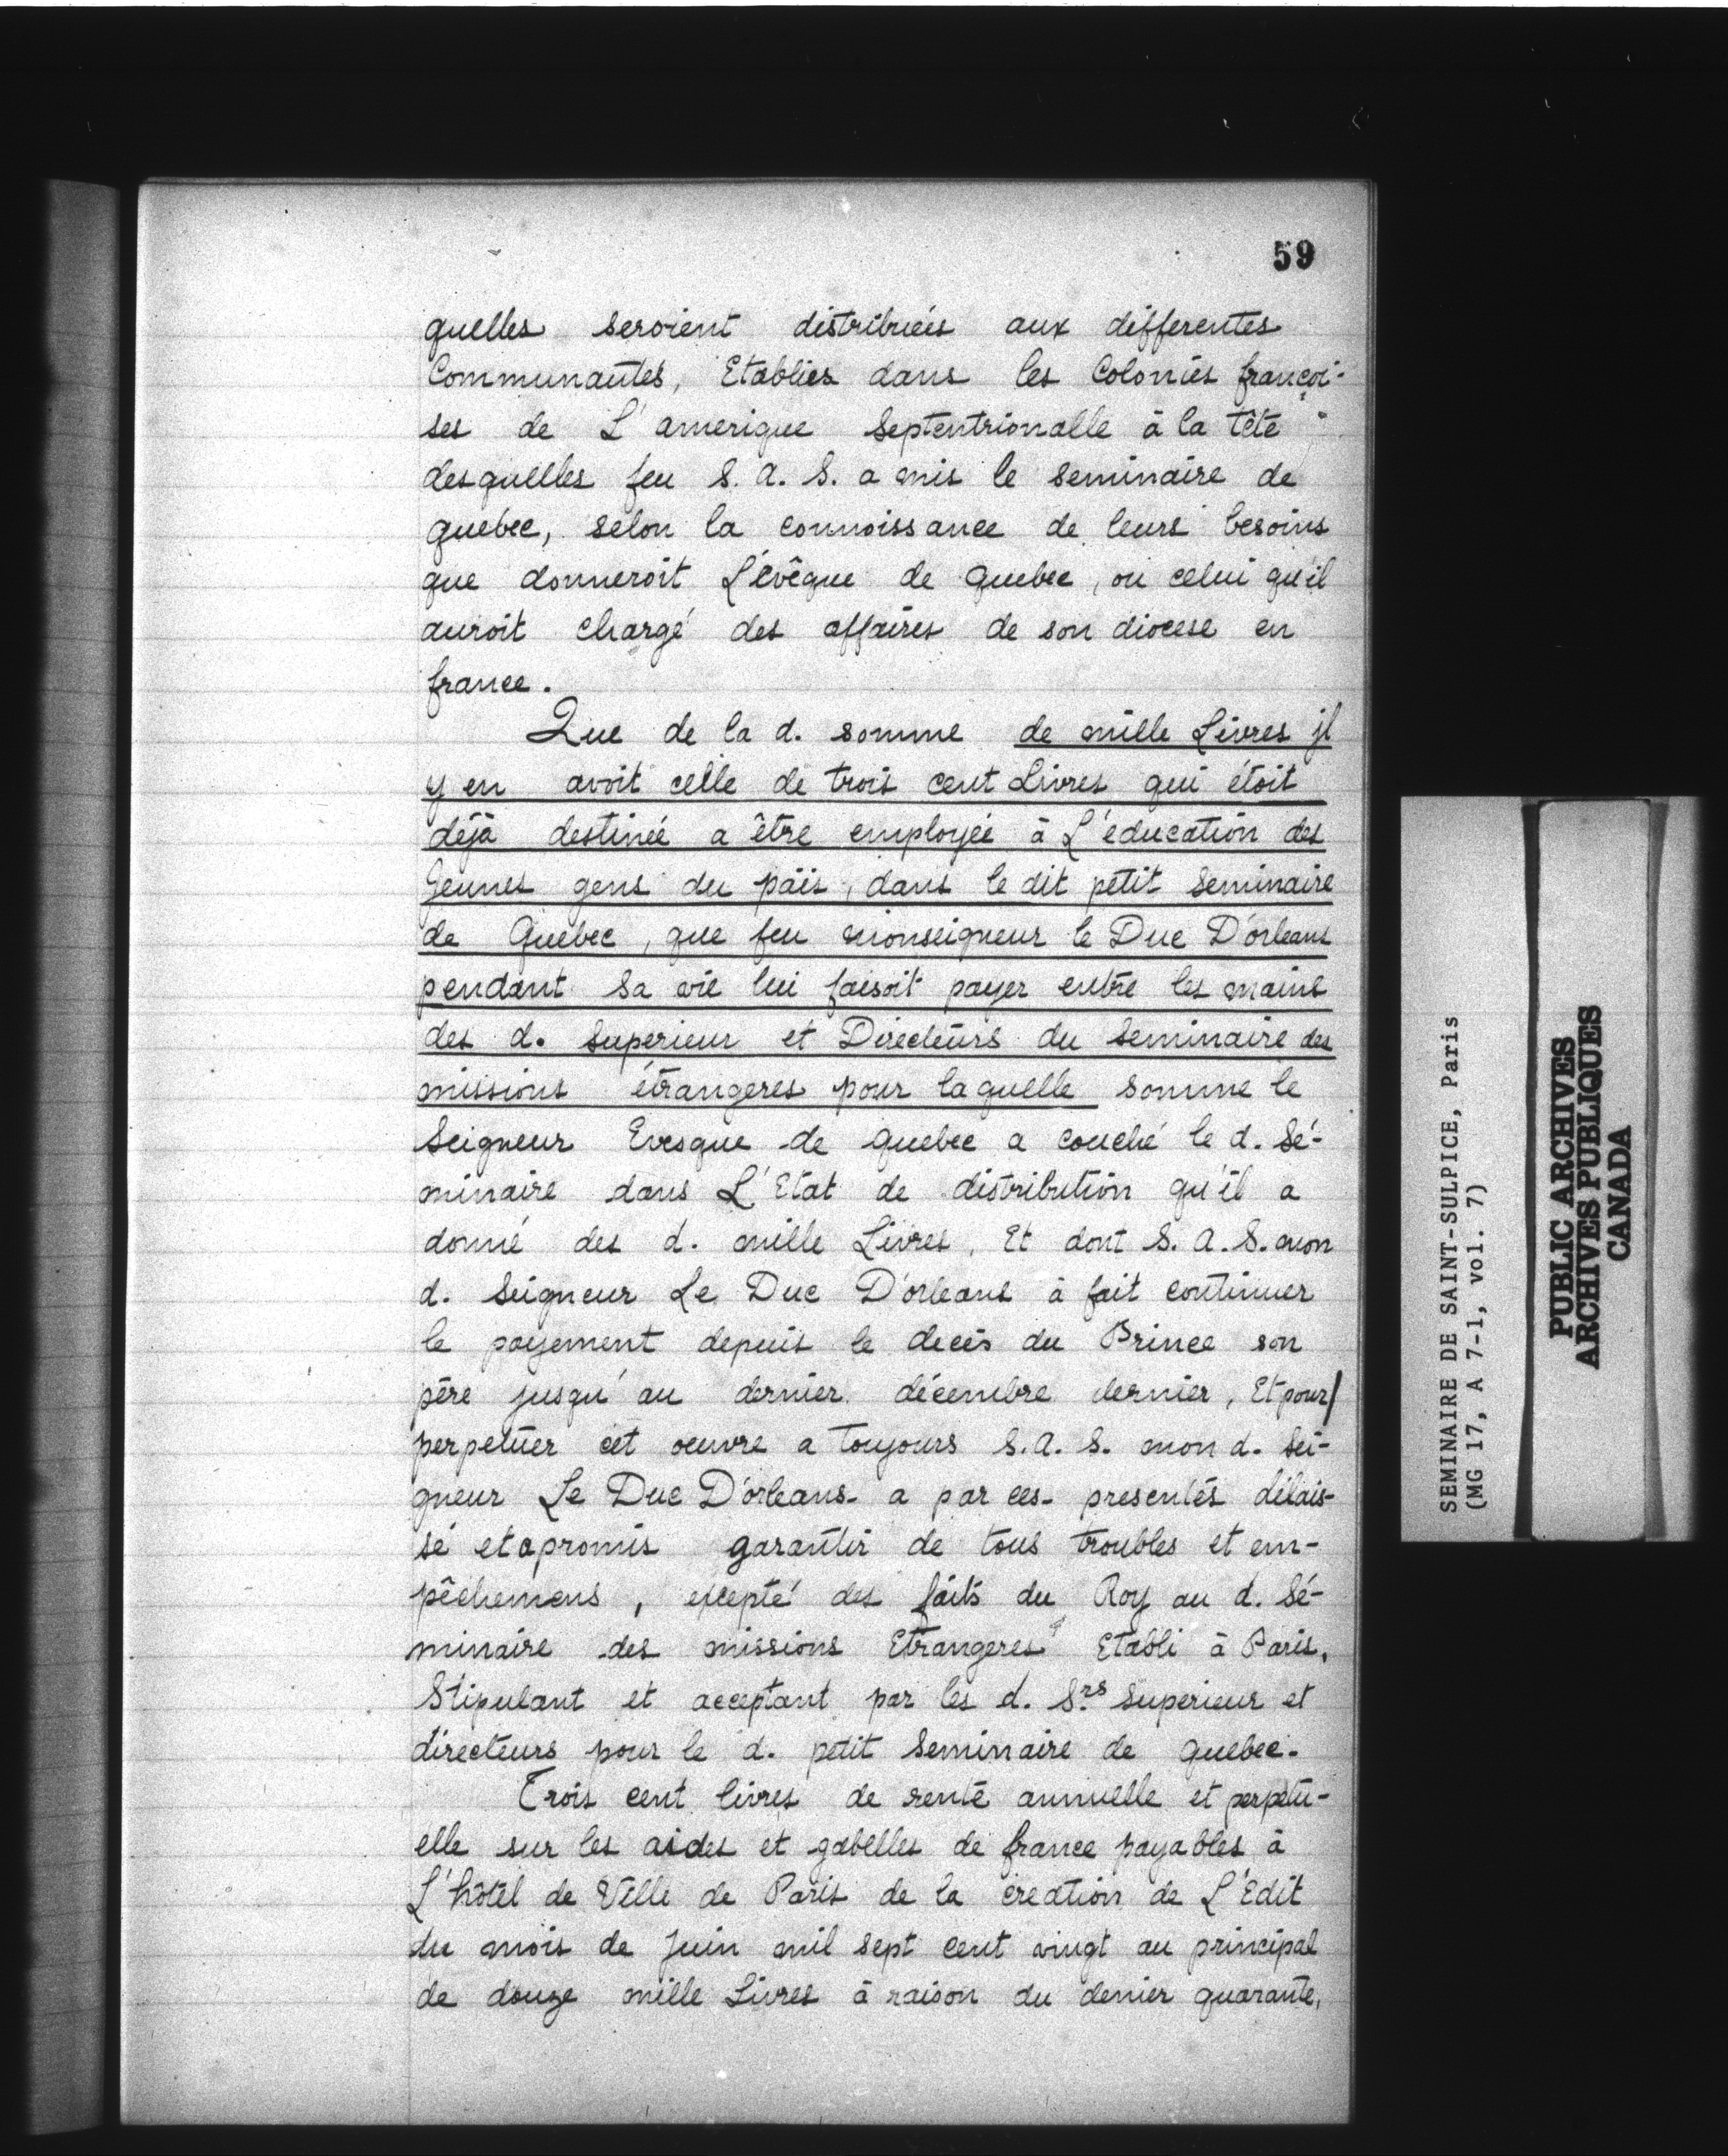 59
quelles seroient distribuées aux differentes
Communautés, Etablies dans les Colonies françoi-
ses de L'amerique Septentrionalle à la tête
desquelles feu S. A. S. a mis le seminaire de
quebec, selon la connoissance de leurs besoins
que donneroit L'évêque de quebec, ou celui qu'il
auroit chargé des affaires de son diocese en
france.
Que de la d. somme de mille Livres jl
y en avoit celle de trois cent Livres qui étoit
déjà destinée a être employée à L'éducation des
Jeunes gens du païs, dans le dit petit Seminaire
de Québec, que feu monseigneur le Duc D'orleans
pendant sa vie lui faisoit payer entre les mains
des d. Superieur et Directeurs du Seminaire des
missions étrangeres pour laquelle somme le
Seigneur Evesque de quebec a couché le d. Sé-
minaire dans L'Etat de distribution qu'il a
donné des d. mille Livres, Et dont S. A. S. mon
d. Seigneur Le Duc D'orleans à fait continuer
le payement depuis le decés du Prince son
père jusqu'au dernier décembre dernier, Et pour/
perpetuer cet oeuvre a toujours S. A. S. mon d. Sei-
gneur Le Duc D'orleans- a par ces- presentés délais-
sé et apromis garantir de tous troubles et em-
pêchemens, excepté des faits du Roy au d. Sé-
minaire des missions Etrangeres Etabli à Paris,
Stipulant et acceptant par les d. Srs Superieur et
directeurs pour le d. petit Seminaire de quebec.
Trois cent livres de rente annuelle et perpétu-
elle sur les aides et gabelles de france payables à
L'hôtel de Ville de Paris de la création de L'Edit
du mois de Juin mil sept cent vingt au principal
de douze mille Livres à raison du denier quarante,
SEMINAIRE DE SAINT-SULPICE, Paris
(MG 17, A 7-1, vol. 7)
PUBLIC ARCHIVES
ARCHIVES PUBLIQUES
CANADA